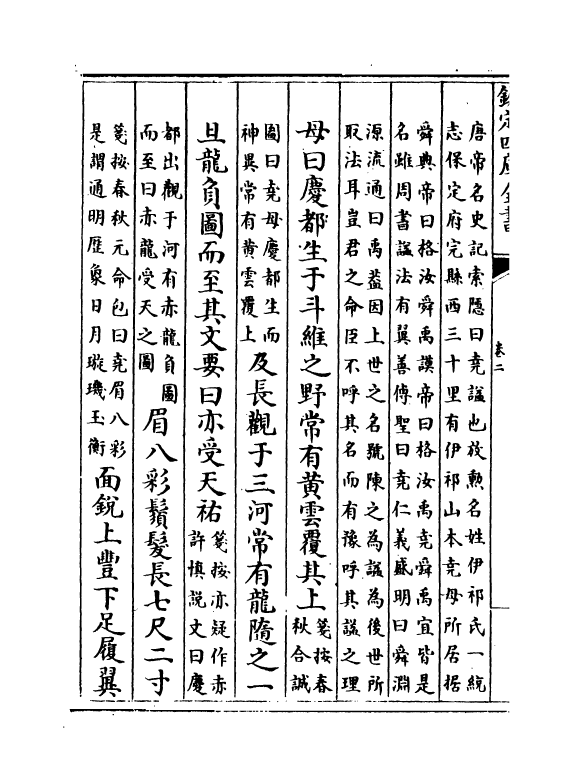 欽定四庫全書
卷二
唐帝名史記索隠曰堯諡也放勲名姓伊祁氏一統
志保定府完縣西三十里有伊祁山本堯母所居据
舜典帝曰格汝舜禹謨帝曰格汝禹堯舜禹宜皆是
名雖周書諡法有翼善傳聖曰堯仁義盛明曰舜淵
源流通曰禹葢因上世之名號陳之為諡為後世所
取法耳豈君之命臣不呼其名而有豫呼其諡之理
母曰慶都生于斗維之野常有黄雲覆其上
箋按春
秋合誠
圖曰堯母慶都生而
神異常有黄雲覆上
及長觀于三河常有龍隨之一
旦龍負圖而至其文要曰亦受天祐
箋按亦疑作赤
許慎説文曰慶
都出觀于河有赤龍負圖
而至曰赤龍受天之圖
眉八彩鬚髮長七尺二寸
箋按春秋元命包曰堯眉八彩
是謂通明歴象日月璇璣玉衡
面鋭上豐下足履翼